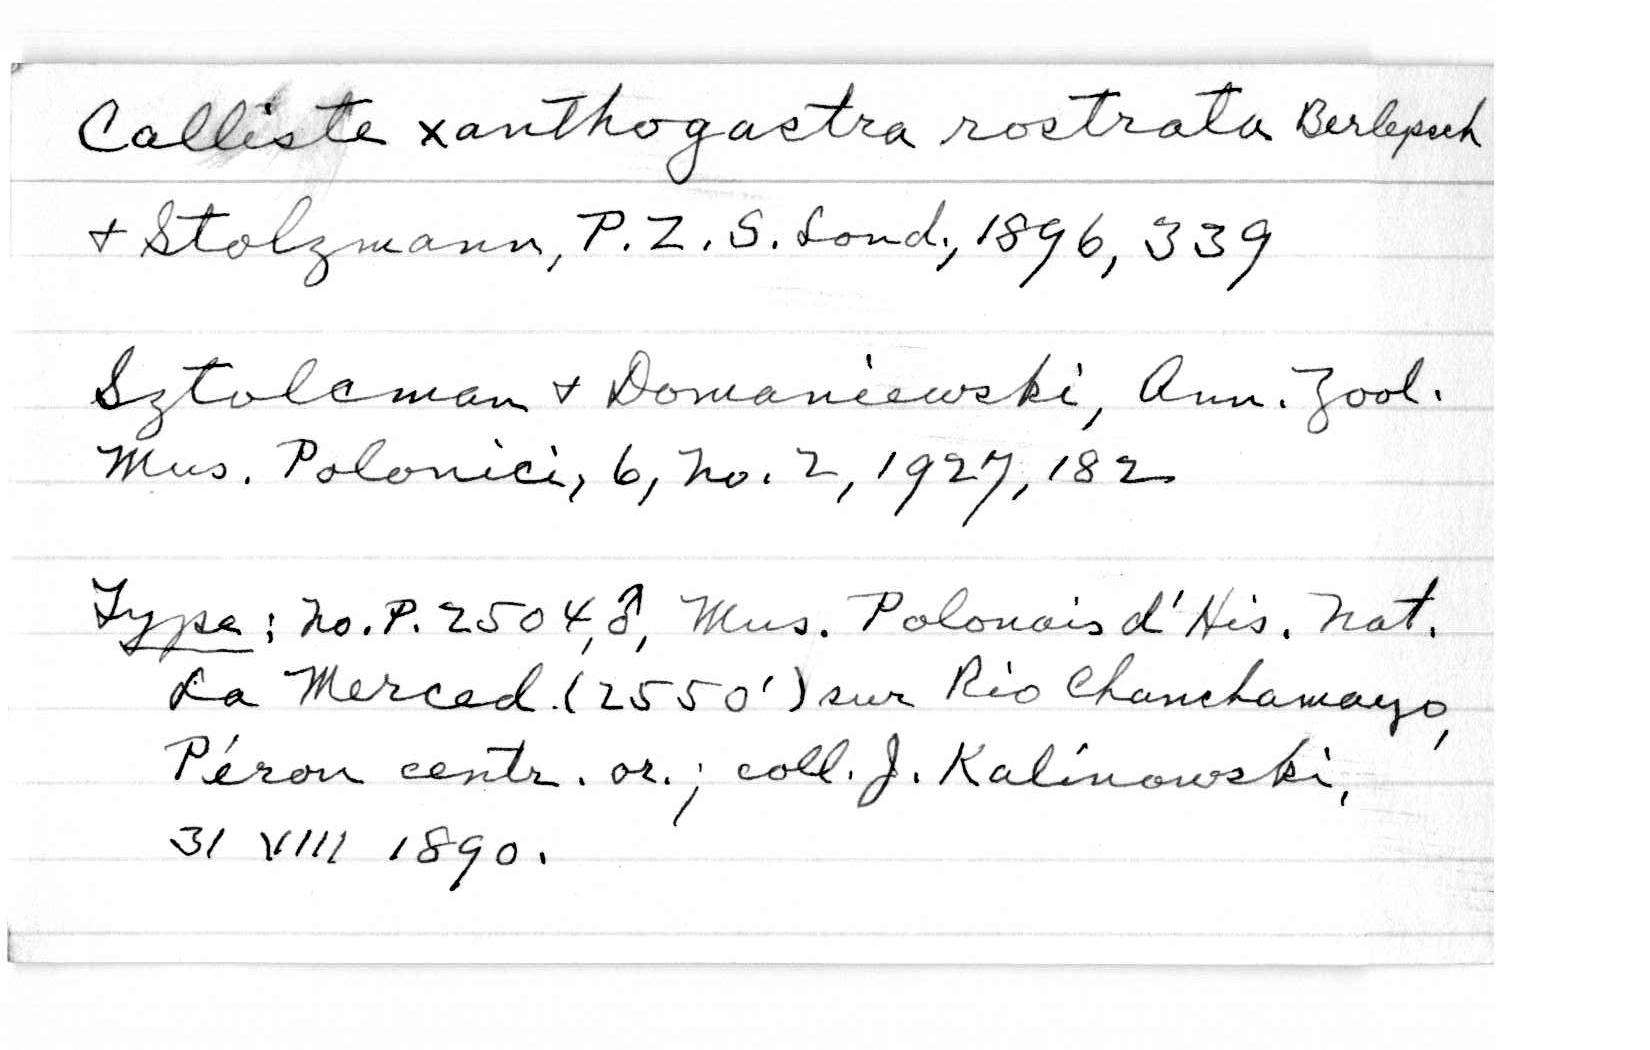 Calliste xanthogastra rostrata Berlepsch
+ Stolzmann, P. Z. S. Lond., 1896, 339
Sztolcman + Domaniewski, Ann. Zool.
Mus. Polonici, 6, no. 2, 1927, 182
Type: no. P. 2504, ♂, Mus. Polonais d' His. Nat.
La Merced (2550') sur Rio Chanchamayo,
Pérou centr. or.; coll. J. Kalinowski,
31 VIII 1890.